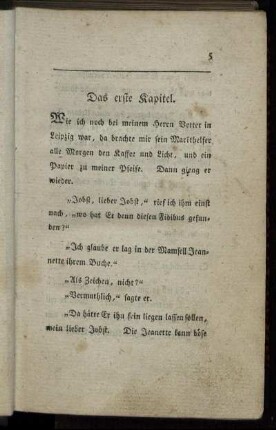 5
Das erste Kapitel.
Wie ich noch bei meinem Herrn Vetter in
Leipzig war, da brachte mir sein Markthelfer
alle Morgen den Kaffee und Licht, und ein
Papier zu meiner Pfeife. Dann gieng er
wieder.
„Jobst, lieber Jobst,“ rief ich ihm einst
nach, „wo hat Er denn diesen Fidibus gefun-
den?“
„Ich glaube er lag in der Mamsell Jean-
nette ihrem Buche.“
„Als Zeichen, nicht?“
„Vermuthlich,“ sagte er.
„Da hätte Er ihn sein liegen lassen sollen,
mein lieber Jobst. Die Jeanette kann böse